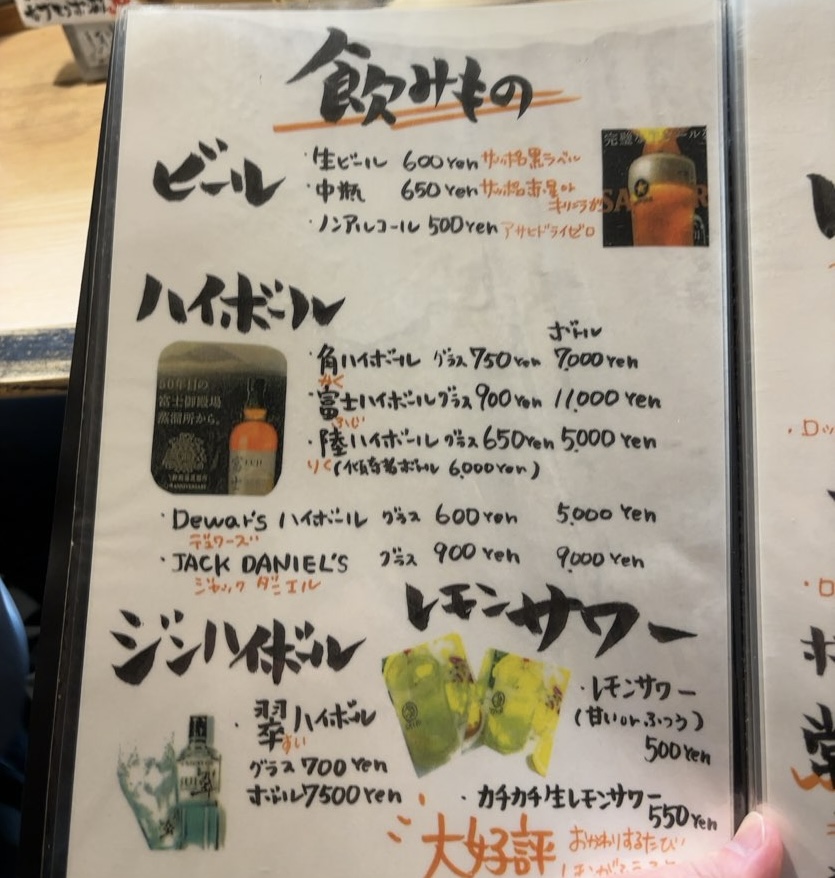 飲みもの
ビール
・生ビール 600yen サッポロ黒ラベル
・中瓶 650yen サッポロ赤星or
キリンラガー
・ノンアルコール 500yen アサヒドライゼロ
ハイボール
ボトル
・角ハイボール グラス 750yen 7,000yen
かく
・富士ハイボール グラス 900yen 11,000yen
ふじ
・陸ハイボール グラス 650yen 5,000yen
りく
50年目の
富士御殿場
蒸溜所から。
・Dewar's ハイボール グラス 600yen 5,000yen
デュワーズ
・JACK DANIEL'S グラス 900yen 9,000yen
ジャック ダニエル
ジンハイボール
・翠ハイボール
すい
グラス 700yen
ボトル 7500yen
レモンサワー
・レモンサワー
(甘いorふつう)
500yen
・カチカチ生レモンサワー
550yen
大好評
おかわりするたび